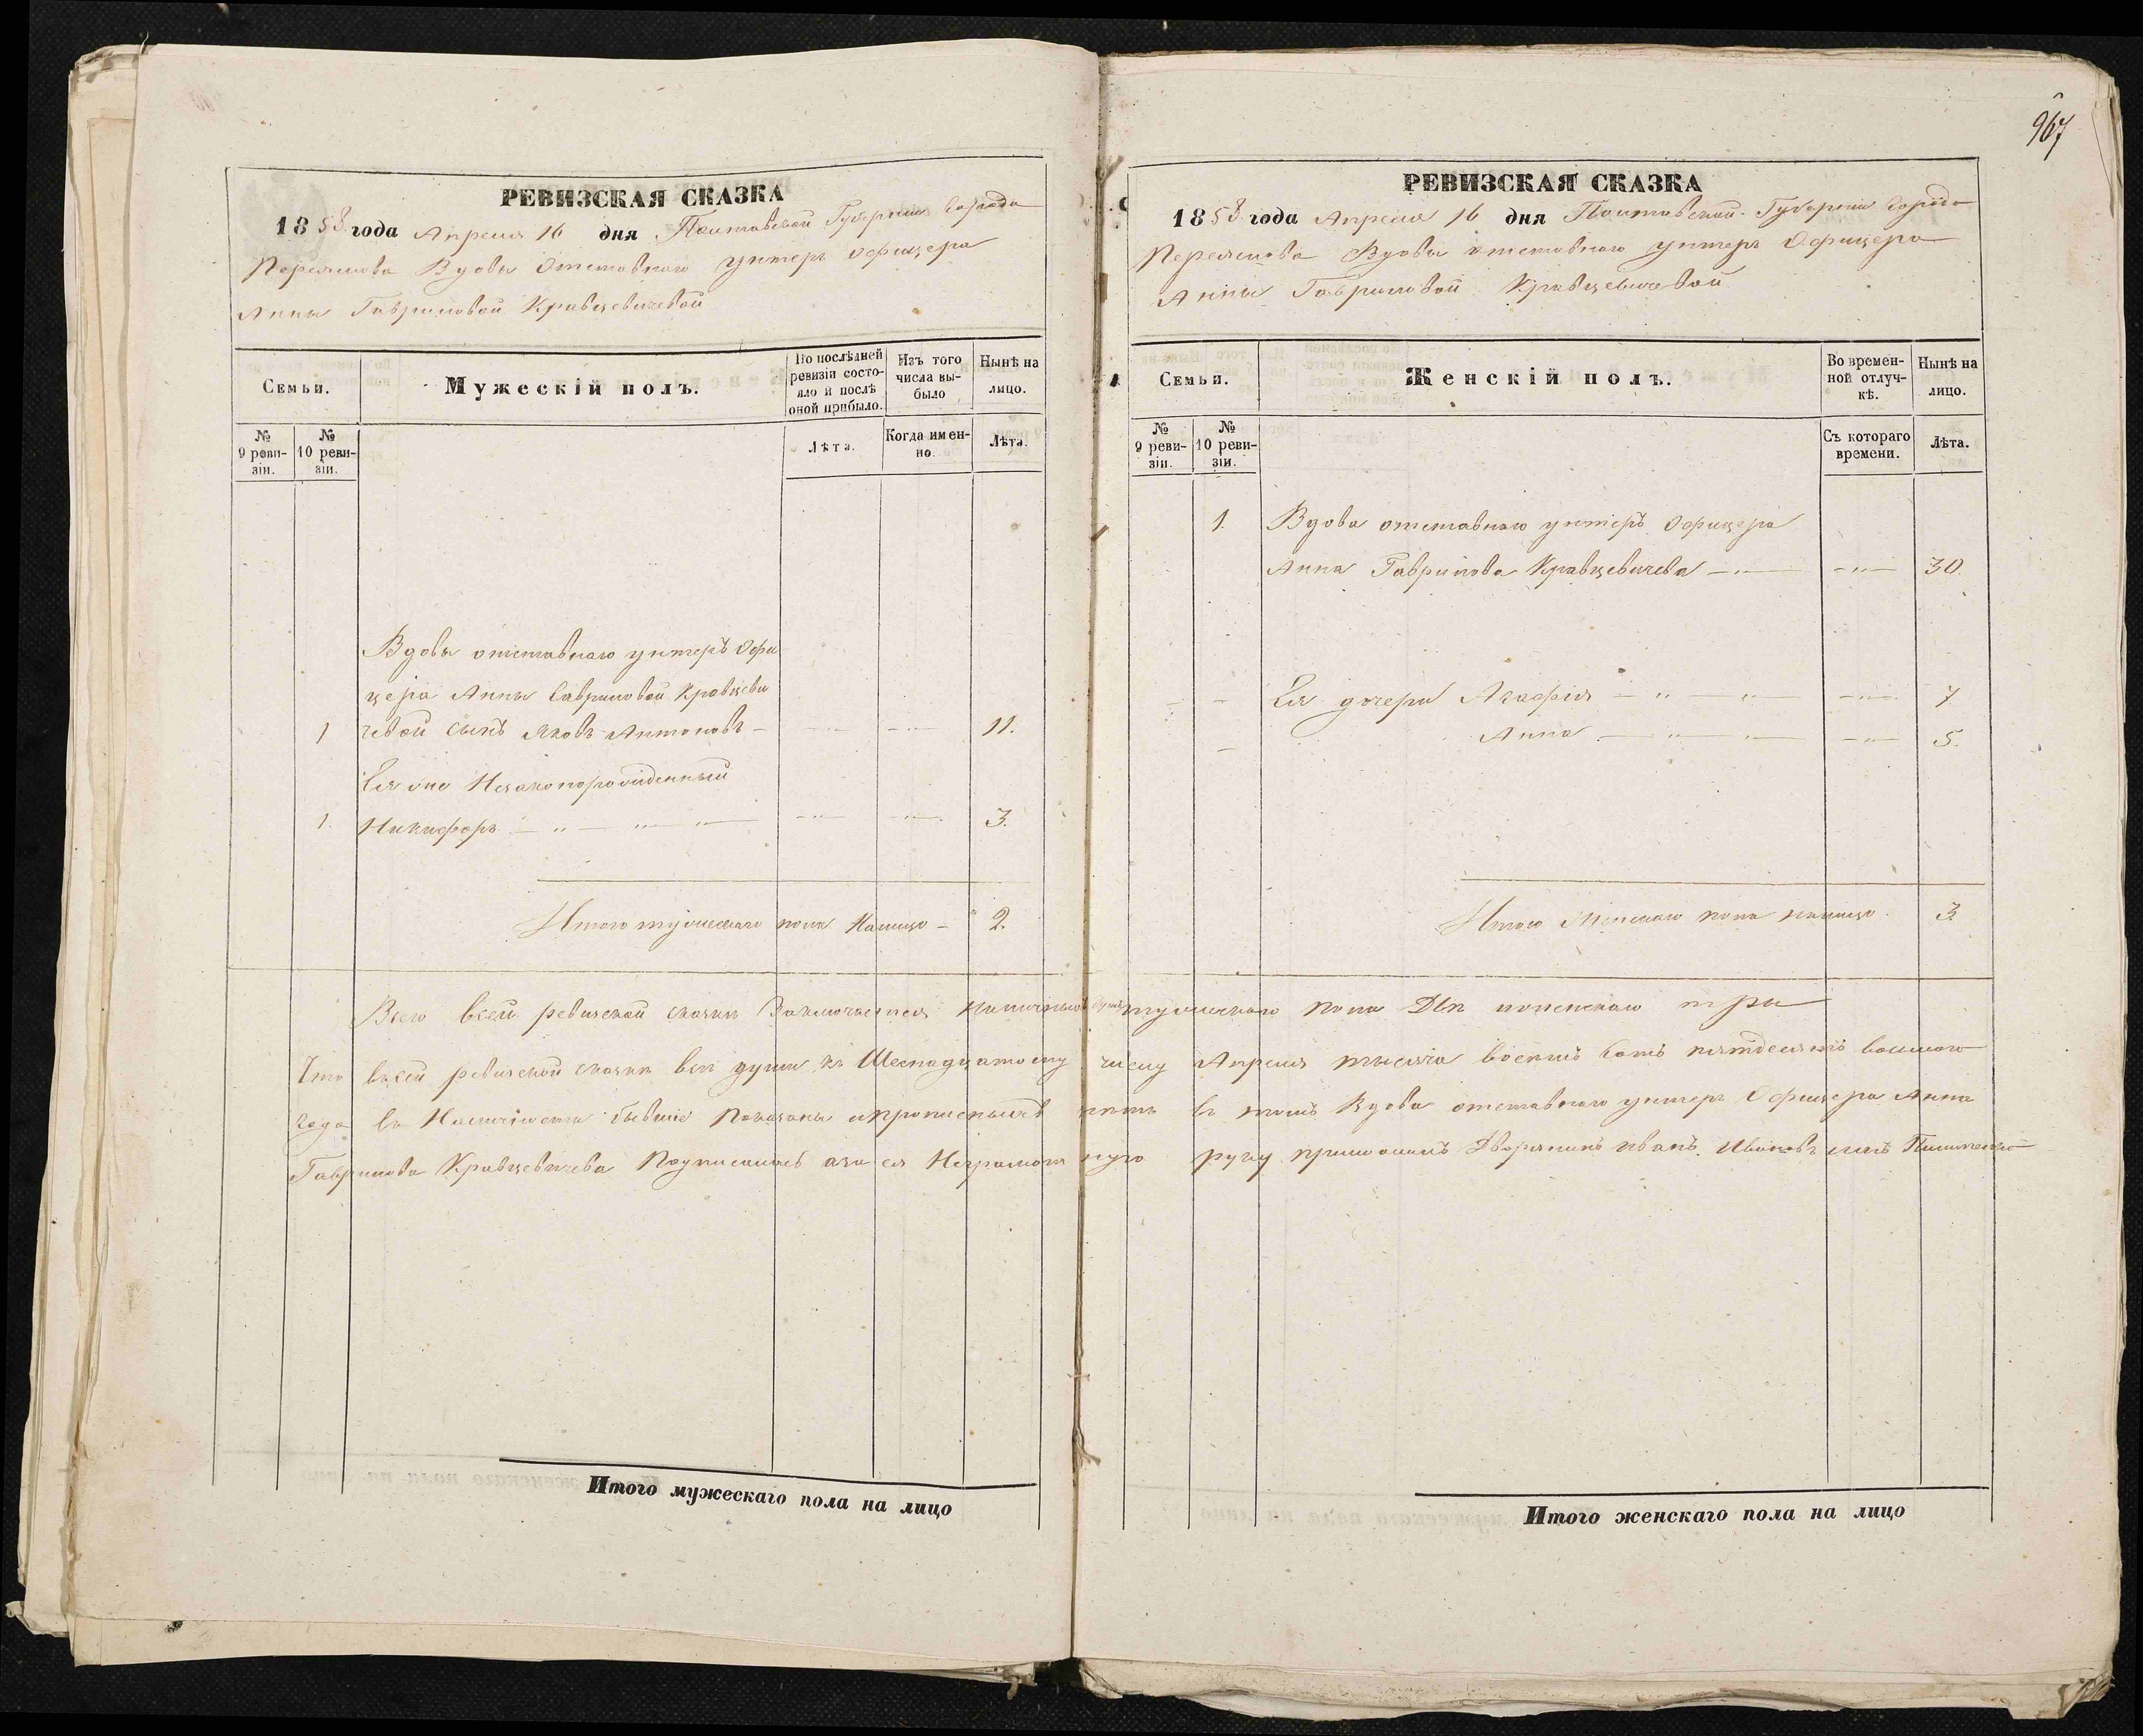 967
РЕВИЗСКАЯ СКАЗКА
1858 года Апреля 16 дня Полтавской Губернии Города
Переяслова Вдовы Отставнаго унтеръ офицера
Анны Гавриловой Кравцевичевой
Семьи.
Мужескій полъ.
По послѣдней ревизіи состояло и послѣ оной прибыло.
Изъ того числа выбыло
Нынѣ на лицо.
№ 9 ревизіи.
№ 10 ревизіи.
Лѣта.
Когда именно.
Лѣта.
Вдовы отставнаго унтеръ Офи
цера Анны Гавриловой Кравцеви
1 чевой сынъ Яковъ Антоновъ - 11.
Ея же Незаконорожденный
1. Никифоръ 3.
Итого мужескаго пола Налицо - 2.
РЕВИЗСКАЯ СКАЗКА
1858 года Апреля 16 дня Полтавской Губернии Города
Переяслова Вдовы отставнаго унтеръ Офицера
Анны Гавриловой Кравцевичевой
Семьи.
Женскій полъ.
Во временной отлучкѣ.
Нынѣ на лицо.
№ 9 ревизіи.
№ 10 ревизіи.
Съ котораго времени.
Лѣта.
1. Вдова отставнаго унтеръ Офицера
Анна Гаврилова Кравцевичева 30.
Ея дочери Агафія 7
Анна 5.
Итого Женскаго пола налицо 3
Всего всей ревизской сказки Заключается Наличныхъ душъ мужескаго пола Два иженскаго три
Что всей ревизской сказки все души къ Шеснадцатому числу Апреля тысяча восемъ сотъ пятдесятъ восмаго
года въ Наличности бывшіе Показаны ипрописныхъ нетъ въ томъ Вдова отставнаго унтеръ Офицера Анна
Гаврилова Кравцевичева Подписалась аза ея Неграмотную руку приложилъ Дворянинъ Иванъ Ивановъ сынъ
Итого мужескаго пола на лицо
Итого женскаго пола на лицо